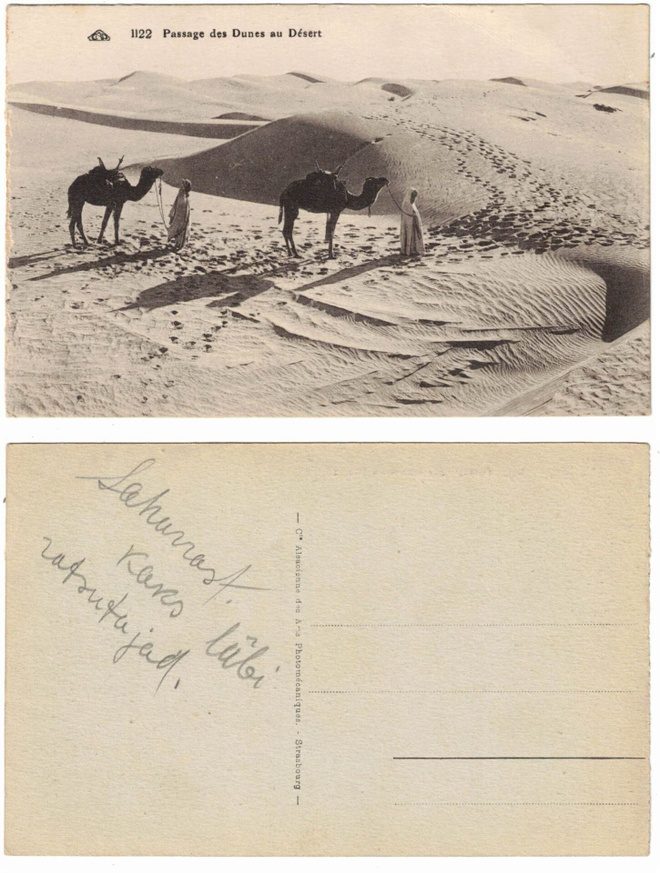 1122 Passage des Dunes au Désert
Saharast.
Kaks
ratsutajad.
— Cie Alsacienne des Arts Photomécaniques. - Strasbourg —